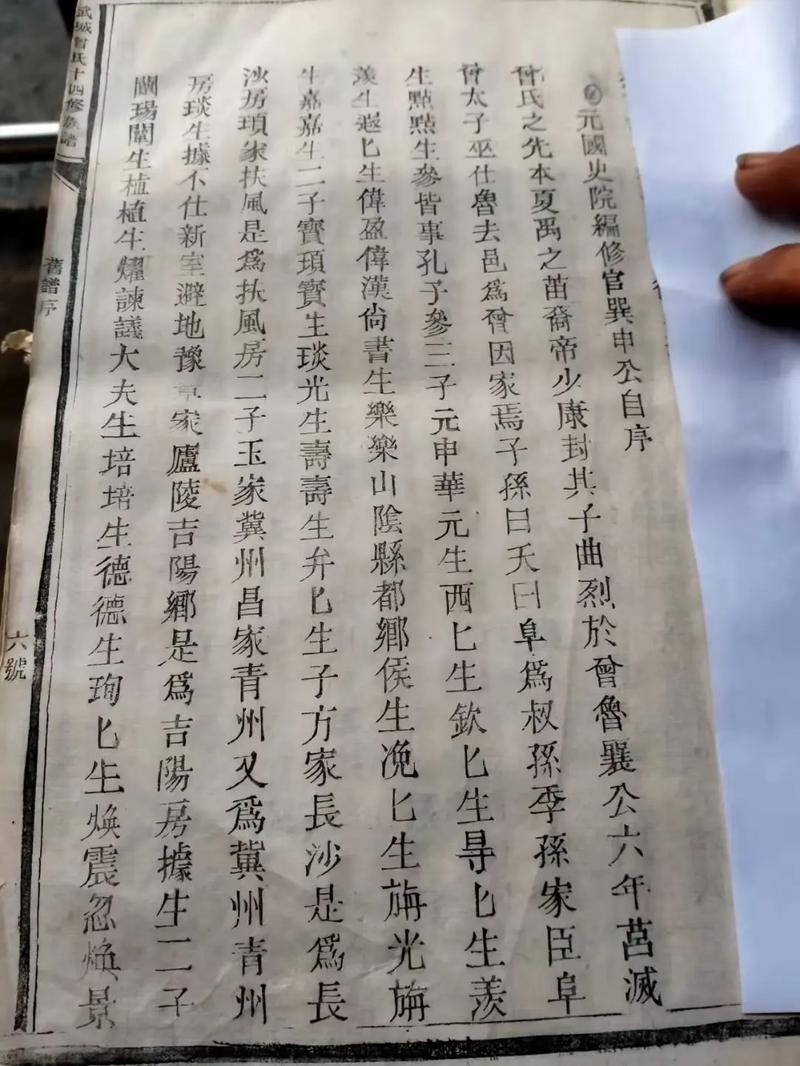 元國史院編修官巽申公自序
曾氏之先本夏禹之苗裔帝少康封其子曲烈於鄫魯襄公六年莒滅
曾太子巫仕魯去邑為曾因家焉子孫曰天曰阜為叔孫季孫家臣阜
生點點生參皆事孔子參三子元申華元生西匕生欽匕生尋匕生羨
羨生遐匕生偉盈偉漢尚書生樂樂山陰縣都鄉侯生浼匕生旃光旃
生嘉嘉生二子寶瑣寶生琰光生壽壽生弁匕生子方家長沙是為長
沙房瑣家扶風是為扶風房二子玉家冀州昌家青州又為冀州青州
房琰生據不仕新室避地豫章家廬陵吉陽鄉是為吉陽房據生二子
闡瑒闡生植植生耀諫議大夫生培培生德德生珣匕生煥震忽煥景
武城曾氏十四修族譜
舊譜序
六號